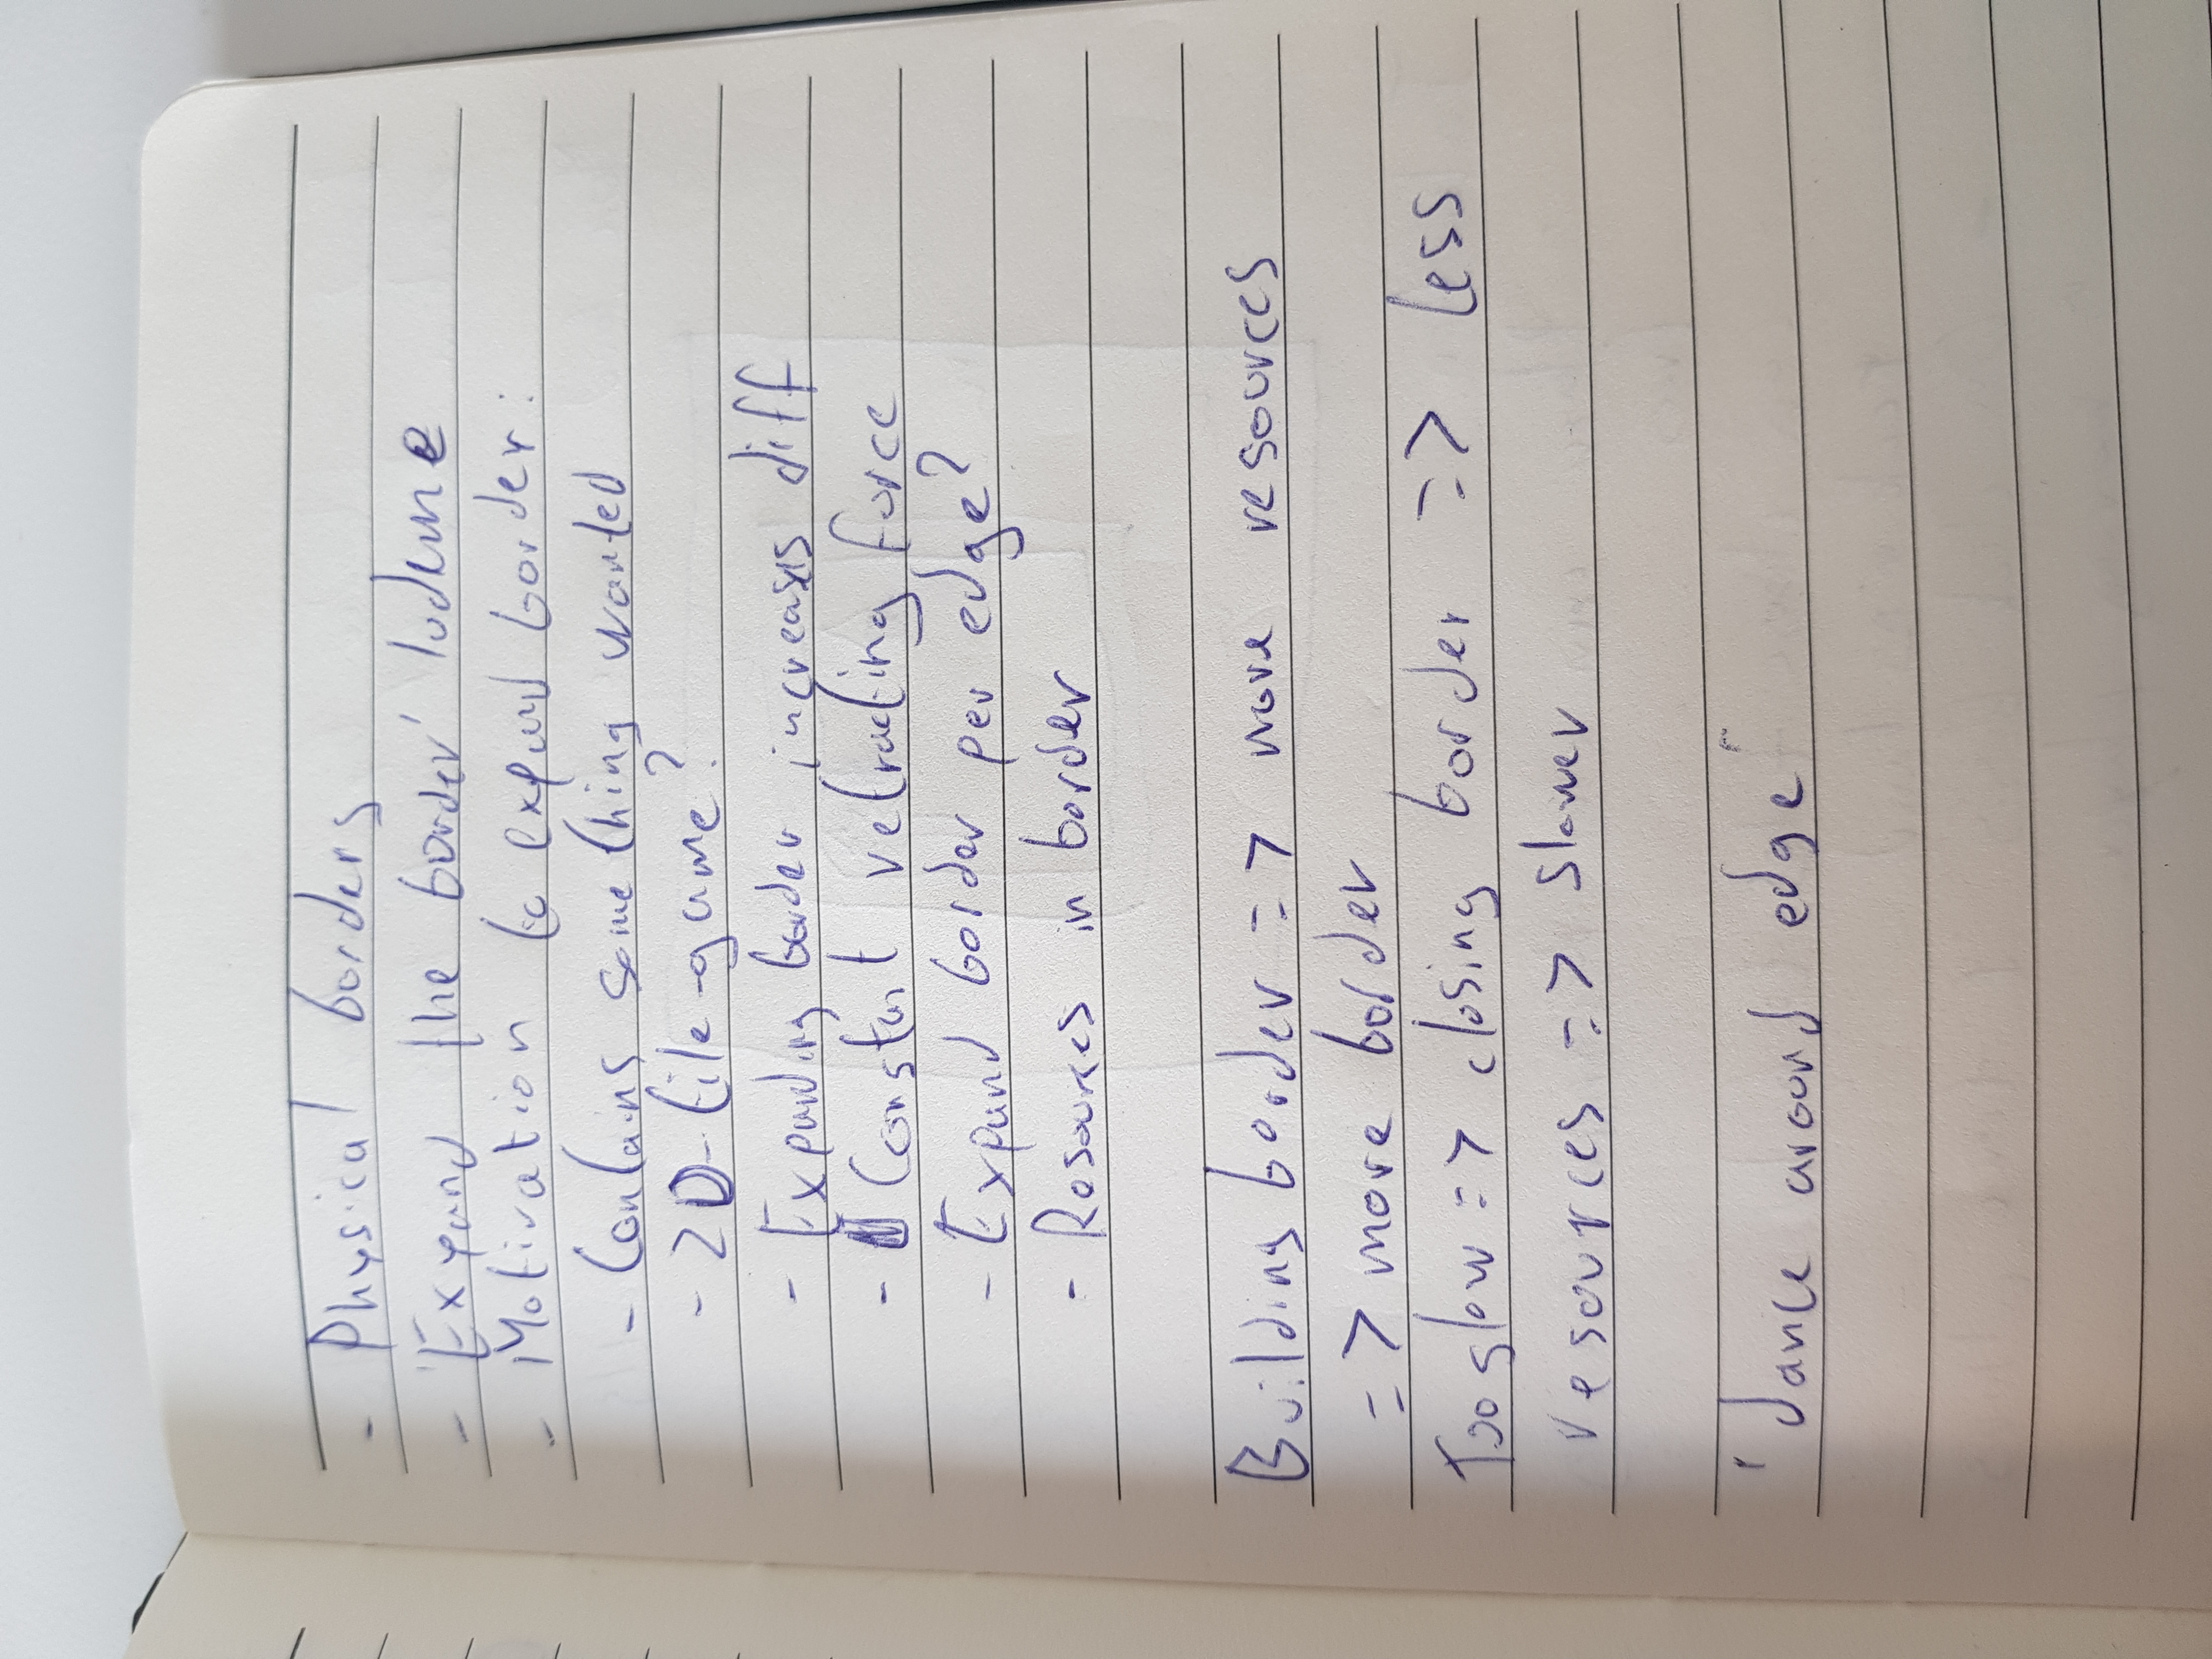 - Physical borders
- Expand the border' ludeme
- Motivation to expand border:
- Contains something wanted
- 2D-tile-game?
- Expanding border increases diff
- Constant retracting force
- Expand border per edge?
- Resources in border
Building border => more resources
=> more border
Too slow => closing border => less
resources => slower
"dance around edge"